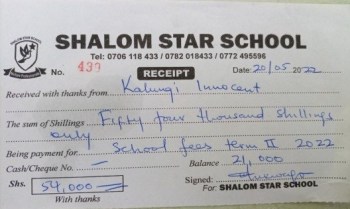 SHALOM STAR SCHOOL
Tel: 0706 118 433 / 0782 018433 / 0772 495596
No. 439 RECEIPT Date: 20/05/2022
Received with thanks from Kalungi Innocent
The sum of Shillings Fifty four thousand shillings
only
Being payment for School fees term II 2022
Cash/Cheque No. Balance 21,000
Shs. 54,000 Signed:
With thanks For: SHALOM STAR SCHOOL